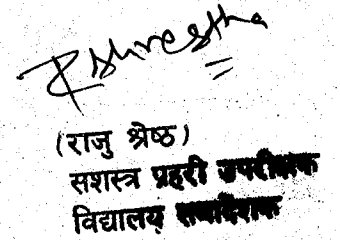 RShrestha
(राजु श्रेष्ठ)
सशस्त्र प्रहरी उपरीक्षक
विद्यालय समादेशक